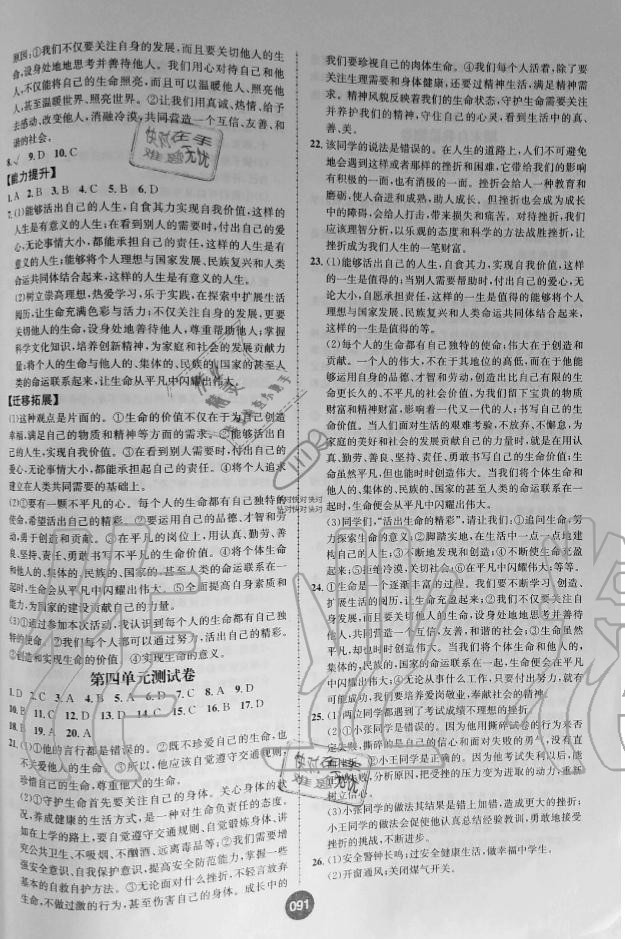 原因;①我们不仅要关注自身的发展,而且要关切他人的生
命,设身处地地思考并善待他人。我们用心对待自己和他
人,不仅能将自己的生命照亮,而且可以温暖他人、照亮他
人,甚至温暖世界、照亮世界。②让我们用真诚、热情、给予
去感动、改变他人,消融冷漠,共同营造一个互信、友善、和
谐的社会。
8.√ 9.D 10.C
【能力提升】
1.A 2.B 3.C 4.C 5.B 6.D
7.(1)能够活出自己的人生,自食其力实现自我价值,这样的
人生是有意义的人生;在看到别人的需要时,付出自己的爱
心,无论事情大小,都能承担自己的责任,这样的人生是有
意义的人生;能够将个人理想与国家发展、民族复兴和人类
命运共同体结合起来,这样的人生是有意义的人生。
(2)树立崇高理想,热爱学习,乐于实践,在探索中扩展生活
阅历,让生命充满色彩与活力;不仅关注自身的发展,更要
关切他人的生命,设身处地善待他人,尊重帮助他人;掌握
科学文化知识,培养创新精神,为家庭和社会的发展贡献力
量;将个人的生命与他人的、集体的、民族的、国家的甚至人
类的命运联系起来,让生命从平凡中闪耀出伟大。
【迁移拓展】
(1)这种观点是片面的。①生命的价值不仅在于为自己创造
幸福,满足自己的物质和精神等方面的需求。②能够活出自
己的人生,实现自我价值。③在看到别人需要时,付出自己的
爱心,无论事情大小,都能承担起自己的责任。④将个人追求
建立在人类共同需要的基础上。
(2)①要有一颗不平凡的心。每个人的生命都有自己独特的
使命,希望活出自己的精彩。②要运用自己的品德、才智和劳
动,勇于创造和贡献。③在平凡的岗位上,用认真、勤劳、善
良、坚持、责任、勇敢书写不平凡的生命。④将个体生命
和他人的、集体的、民族的、国家的甚至人类的命运联系在一
起时,生命会从平凡中闪耀出伟大。⑤全面提高自身素质和
能力,为国家的建设贡献自己的力量。
(3)①通过参加本次活动,我认识到每个人都有自己独
特的使命。②我们每个人都可以通过努力,活出自己的精彩。
③创造和实现生命的价值 ④实现生命的意义。
第四单元测试卷
1.D 2.C 3.A 4.B 5.A 6.D 7.D 8.A 9.D
10.B 11.C 12.D 13.D 14.C 15.C 16.B 17.D
18.B 19.A 20.A
21.(1)①他的言行都是错误的。②既不珍爱自己的生命,也
不关爱他人的生命。③所以,他应该自觉遵守交通规则,
珍惜自己的生命,尊重他人的生命。
(2)①守护生命首先要关注自己的身体。关心身体的状
况,养成健康的生活方式,是一种对生命负责任的态度。
如在上学的路上,要自觉遵守交通规则、自觉锻炼身体、讲
究公共卫生、不吸烟、不酗酒、远离毒品等;②我们需要增
强安全意识、自我保护意识,提高安全防范能力,掌握一些
基本的自救自护方法。③无论面对什么挫折,不轻言放弃
生命,不做过激的行为,甚至伤害自己的身体。成长中的
我们要珍视自己的肉体生命。④我们每个人活着,除了要
关注生理需要和身体健康,还要过精神生活,满足精神需
求。精神风貌反映着我们的生命状态,守护生命需要关注
并养护我们的精神,过有尊严的、自己的心灵,看到生活中的真、
善、美。
22.该同学的说法是错误的。在人生的道路上,人们不可避免
地会遇到这样或者那样的挫折和困难,它带给我们的影响
有积极的一面,也有消极的一面。挫折会给人一种教育和
磨砺,使人奋进和成熟,助人成长。但挫折也会成为成长
中的障碍,会给人打击,带来损失和痛苦。对待挫折,我们
应该理智分析,以乐观的态度和科学的方法战胜挫折,让
挫折成为我们人生的一笔财富。
23.(1)能够活出自己的人生,自食其力,实现自我价值,这样
的一生是值得的;当别人需要帮助时,付出自己的爱心,无
论大小,自愿承担责任,这样的一生是值得的能够将个人
理想与国家发展、民族复兴和人类命运共同体结合起来,
这样的一生是值得的等。
(2)每个人的生命都有自己独特的使命;伟大在于创造和
贡献。一个人的伟大,不在于其地位的高低,而在于他能
够运用自身的品德、才智和劳动,创造出比自己有限的生
命更长久的、不平凡的社会价值,为我们留下宝贵的物质
财富和精神财富,影响着一代又一代的人;书写自己的生
命价值。当人们面对生活的艰难考验,不放弃、不懈怠,为
家庭的美好和社会的发展贡献自己的力量时,就是在用认真、
勤劳、善良、坚持、责任、勇敢书写自己的生命价值;生
命虽然平凡,但也能时时创造伟大。当我们将个体生命和
他人的、集体的、民族的、国家的甚至人类的命运联系在一
起时,生命便会从平凡中闪耀出伟大。
(3)同学们,“活出生命的精彩”,请让我们:①追问生命,努
力探索生命的意义;②脚踏实地,在生活中一点一点地建
构自己的人生;③不断地发现和创造;④不断使生命充盈
起来;⑤拒绝冷漠,关切他人;⑥在平凡中闪耀伟大;等等。
24.①生命是一个逐渐丰富的过程。我们要不断学习、创造、
扩展生活的阅历,让生命充盈起来;②我们不仅要关注自
身发展,而且要关切他人的生命,设身处地地思考并善待
他人,共同营造一个互信、友善、和谐的社会;③生命虽平
凡,却也能时时创造伟大。当我们将个体生命和他人的、
集体的甚至人类的命运联系在一起时,生命便会在平凡中
闪耀出伟大;④无论从事什么工作,只要付出努力,就有
可能成功,我们要培养爱岗敬业,奉献社会的精神。
25.(1)两位同学都遇到了考试成绩不理想的挫折。
(2)①小张同学是错误的。因为他用撕碎试卷的行为来否
定失败,撕碎的是自己的信心和面对失败的勇气,没有直
面挫折。②小王同学是正确的。因为他考试失利以后,能
分析原因,把受挫的压力变为进取的动力,重新
树立信心。
(3)小张同学的做法其结果是错上加错,造成更大的挫折;
小王同学的做法会使他认真总结经验教训,勇敢地接受
挫折的挑战,不断进步。
26.(1)安全警钟长鸣;过安全健康生活,做幸福中学生。
(2)开窗通风;关闭煤气开关。
091